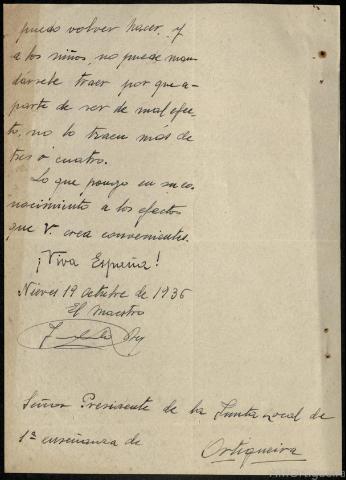 puedo volver hacer. Y
a los niños, no puede man-
darsele traer por que a-
parte de ser de mal efec-
to, no lo traen más de
tres o cuatro.
Lo que pongo en su co-
nocimiento a los efectos
que V. crea convenientes.
¡Viva España!
Nieves 19 octubre de 1936
El maestro
Señor Presidente de la Junta Local de
1ª enseñanza de
Ortigueira